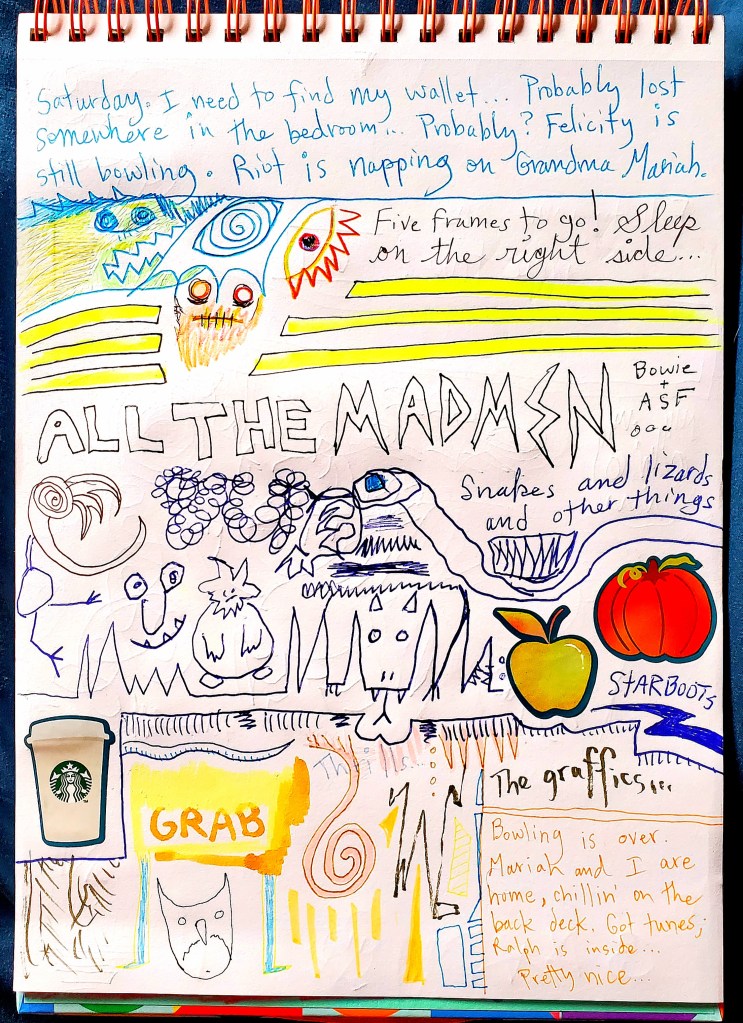 Saturday. I need to find my wallet... Probably lost
somewhere in the bedroom... Probably? Felicity is
still bowling. Riot is napping on Grandma Mariah.
Five frames to go! Sleep
on the right side...
ALL THE MADMEN
Bowie
+
ASF
Snakes and lizards
and other things
STARBOOTS
Thrills
GRAB
The graffics...
Bowling is over.
Mariah and I are
home, chillin' on the
back deck. Got tunes;
Ralph is inside...
Pretty nice...